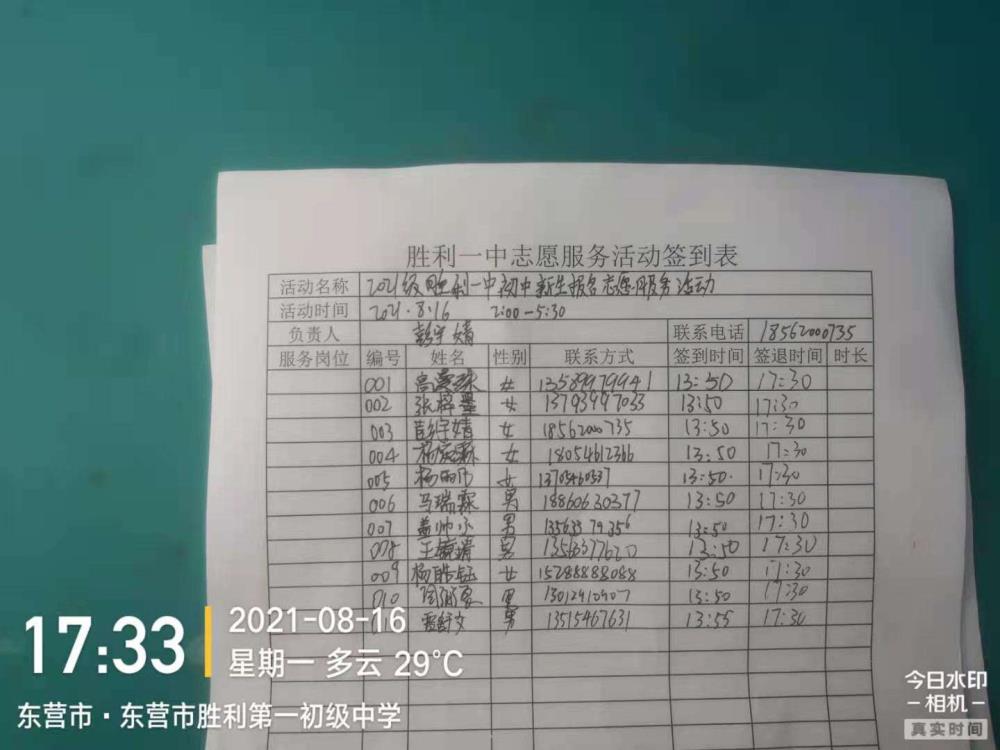 胜利一中志愿服务活动签到表
活动名称 2021级胜利一中初中新生报名志愿服务活动
活动时间 2021.8.16 2:00-5:30
负责人 彭宇婧 联系电话 18562000735
服务岗位 编号 姓名 性别 联系方式 签到时间 签退时间 时长
001 女 13589979941 13:50 17:30
002 张梓墨 女 13793997033 13:50 17:30
003 彭宇婧 女 18562000735 13:50 17:30
004 女 18054612366 13:50 17:30
005 女 13705460537 13:50. 17:30
006 马瑞霖 男 18860630377 13:50 17:30
007 盖帅小 男 13:50 17:30
008 男 13:50 17:30
009 女 15288888088 13:50 17:30
010 男 13:50 17:30
男 13515467631 13:55 17:30
17:33
2021-08-16
星期一 多云 29°C
东营市·东营市胜利第一初级中学
今日水印
-相机-
真实时间